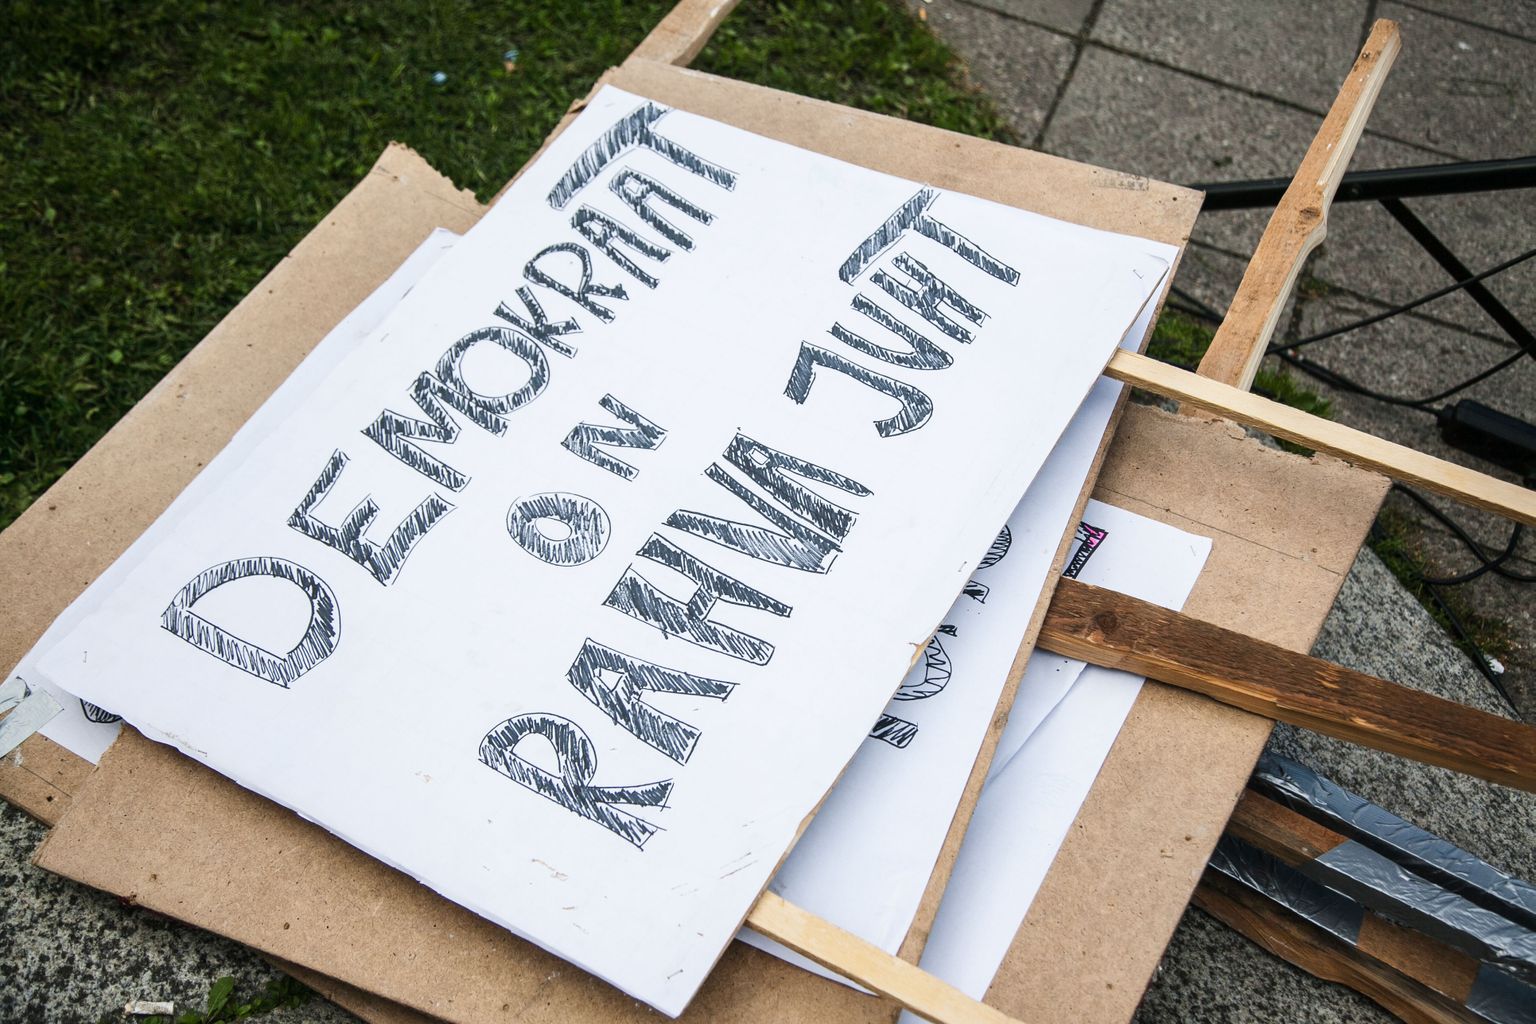 DEMOKRAAT
ON
RAHVA JUHT